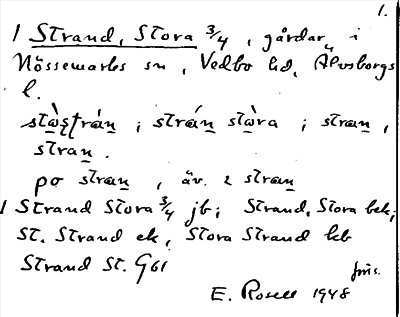 1.
1 Strand, Stora 3/4, gårdar i
Nössemarks sn, Vedbo hd, Älvsborgs
l.
stran, stràn stòra ; stran,
stran.
po stran, äv. i stran
1 Strand Stora 3/4 jb; Strand, Stora bek;
St. Strand ek, Stora Strand kb
Strand St. G61
E. Rosell 1948